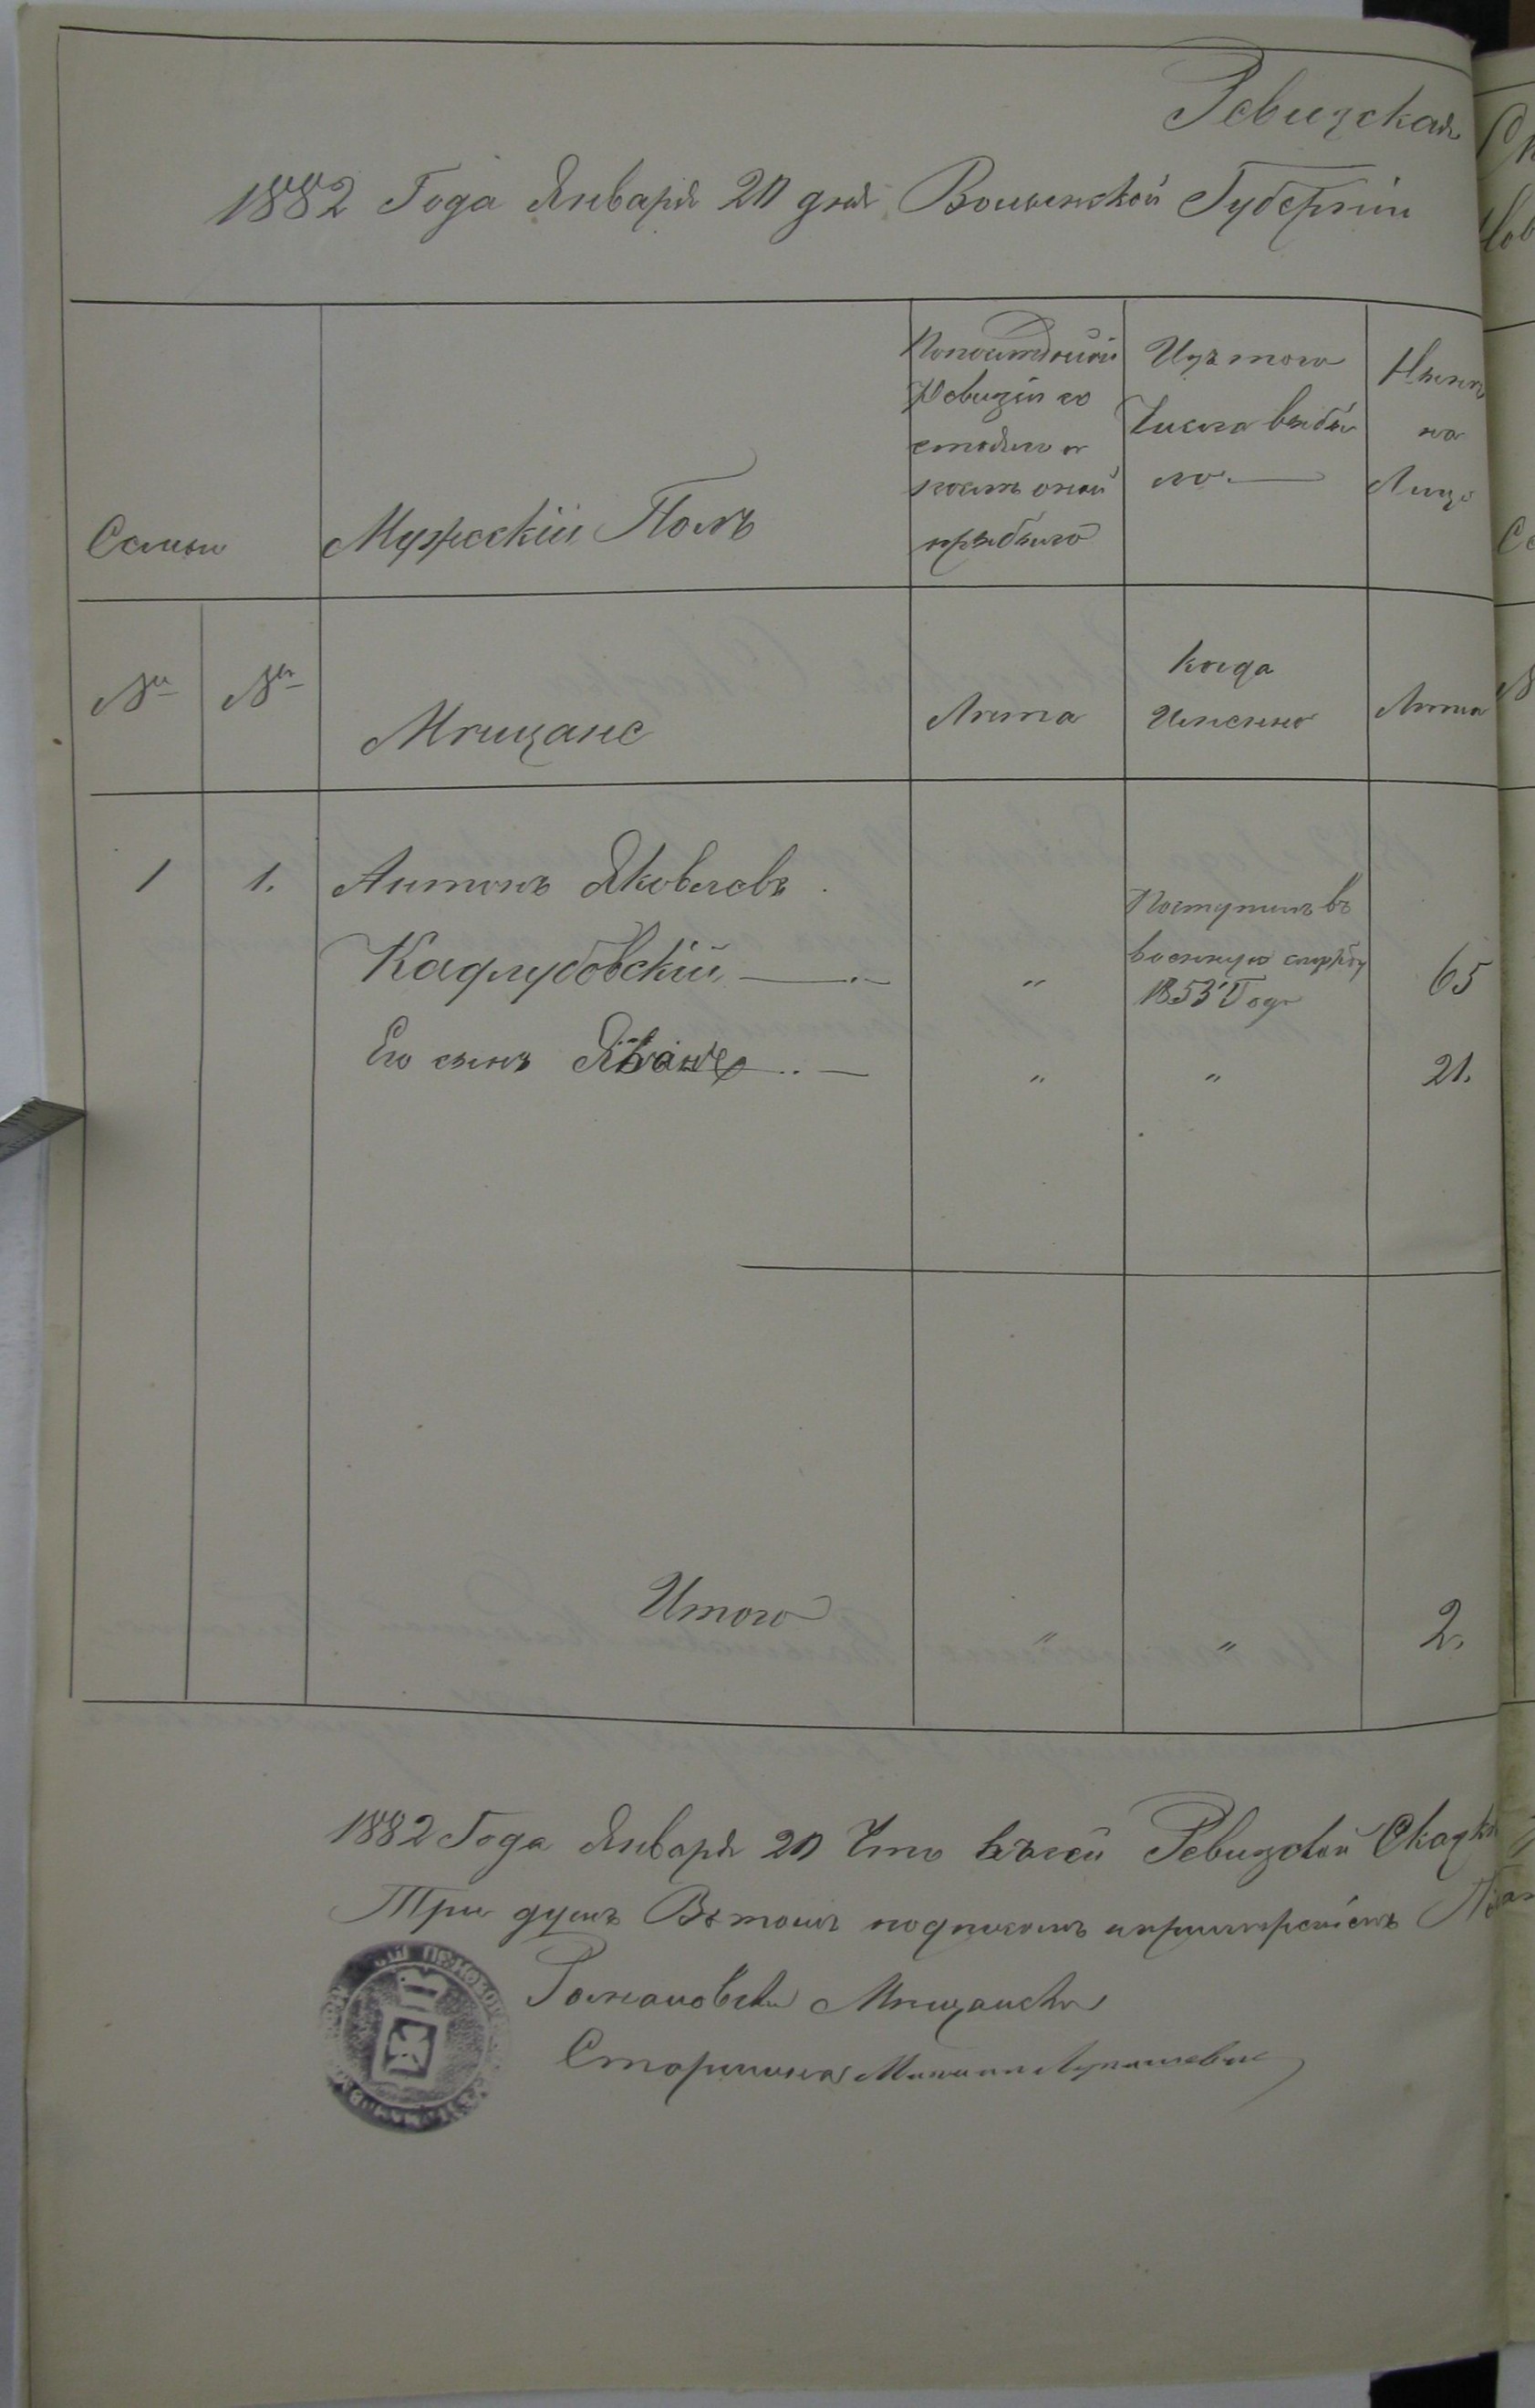 Ревизская
1882 Года Января 20 дня Волынской Губерніи
Семьи
Мужескій Полъ
Попоследней
Ревизіи со
стояло и
после оной
прибыло
Изъ того
Числа выбы
ло
Ныне
на
Лицо
№
№
Мещане
Лета
Когда
Именно
Лета
1 1. Антонъ Яковлевъ
Кадлубовскій " 65
Поступилъ въ
военную службу
1853 Года
Его сынъ " " 21.
Итого " " 2.
1882 Года Января 20 Что въсей Ревизской Сказке
Три душъ Въ томъ подписомъ
Романовский Мещанский
Старшина